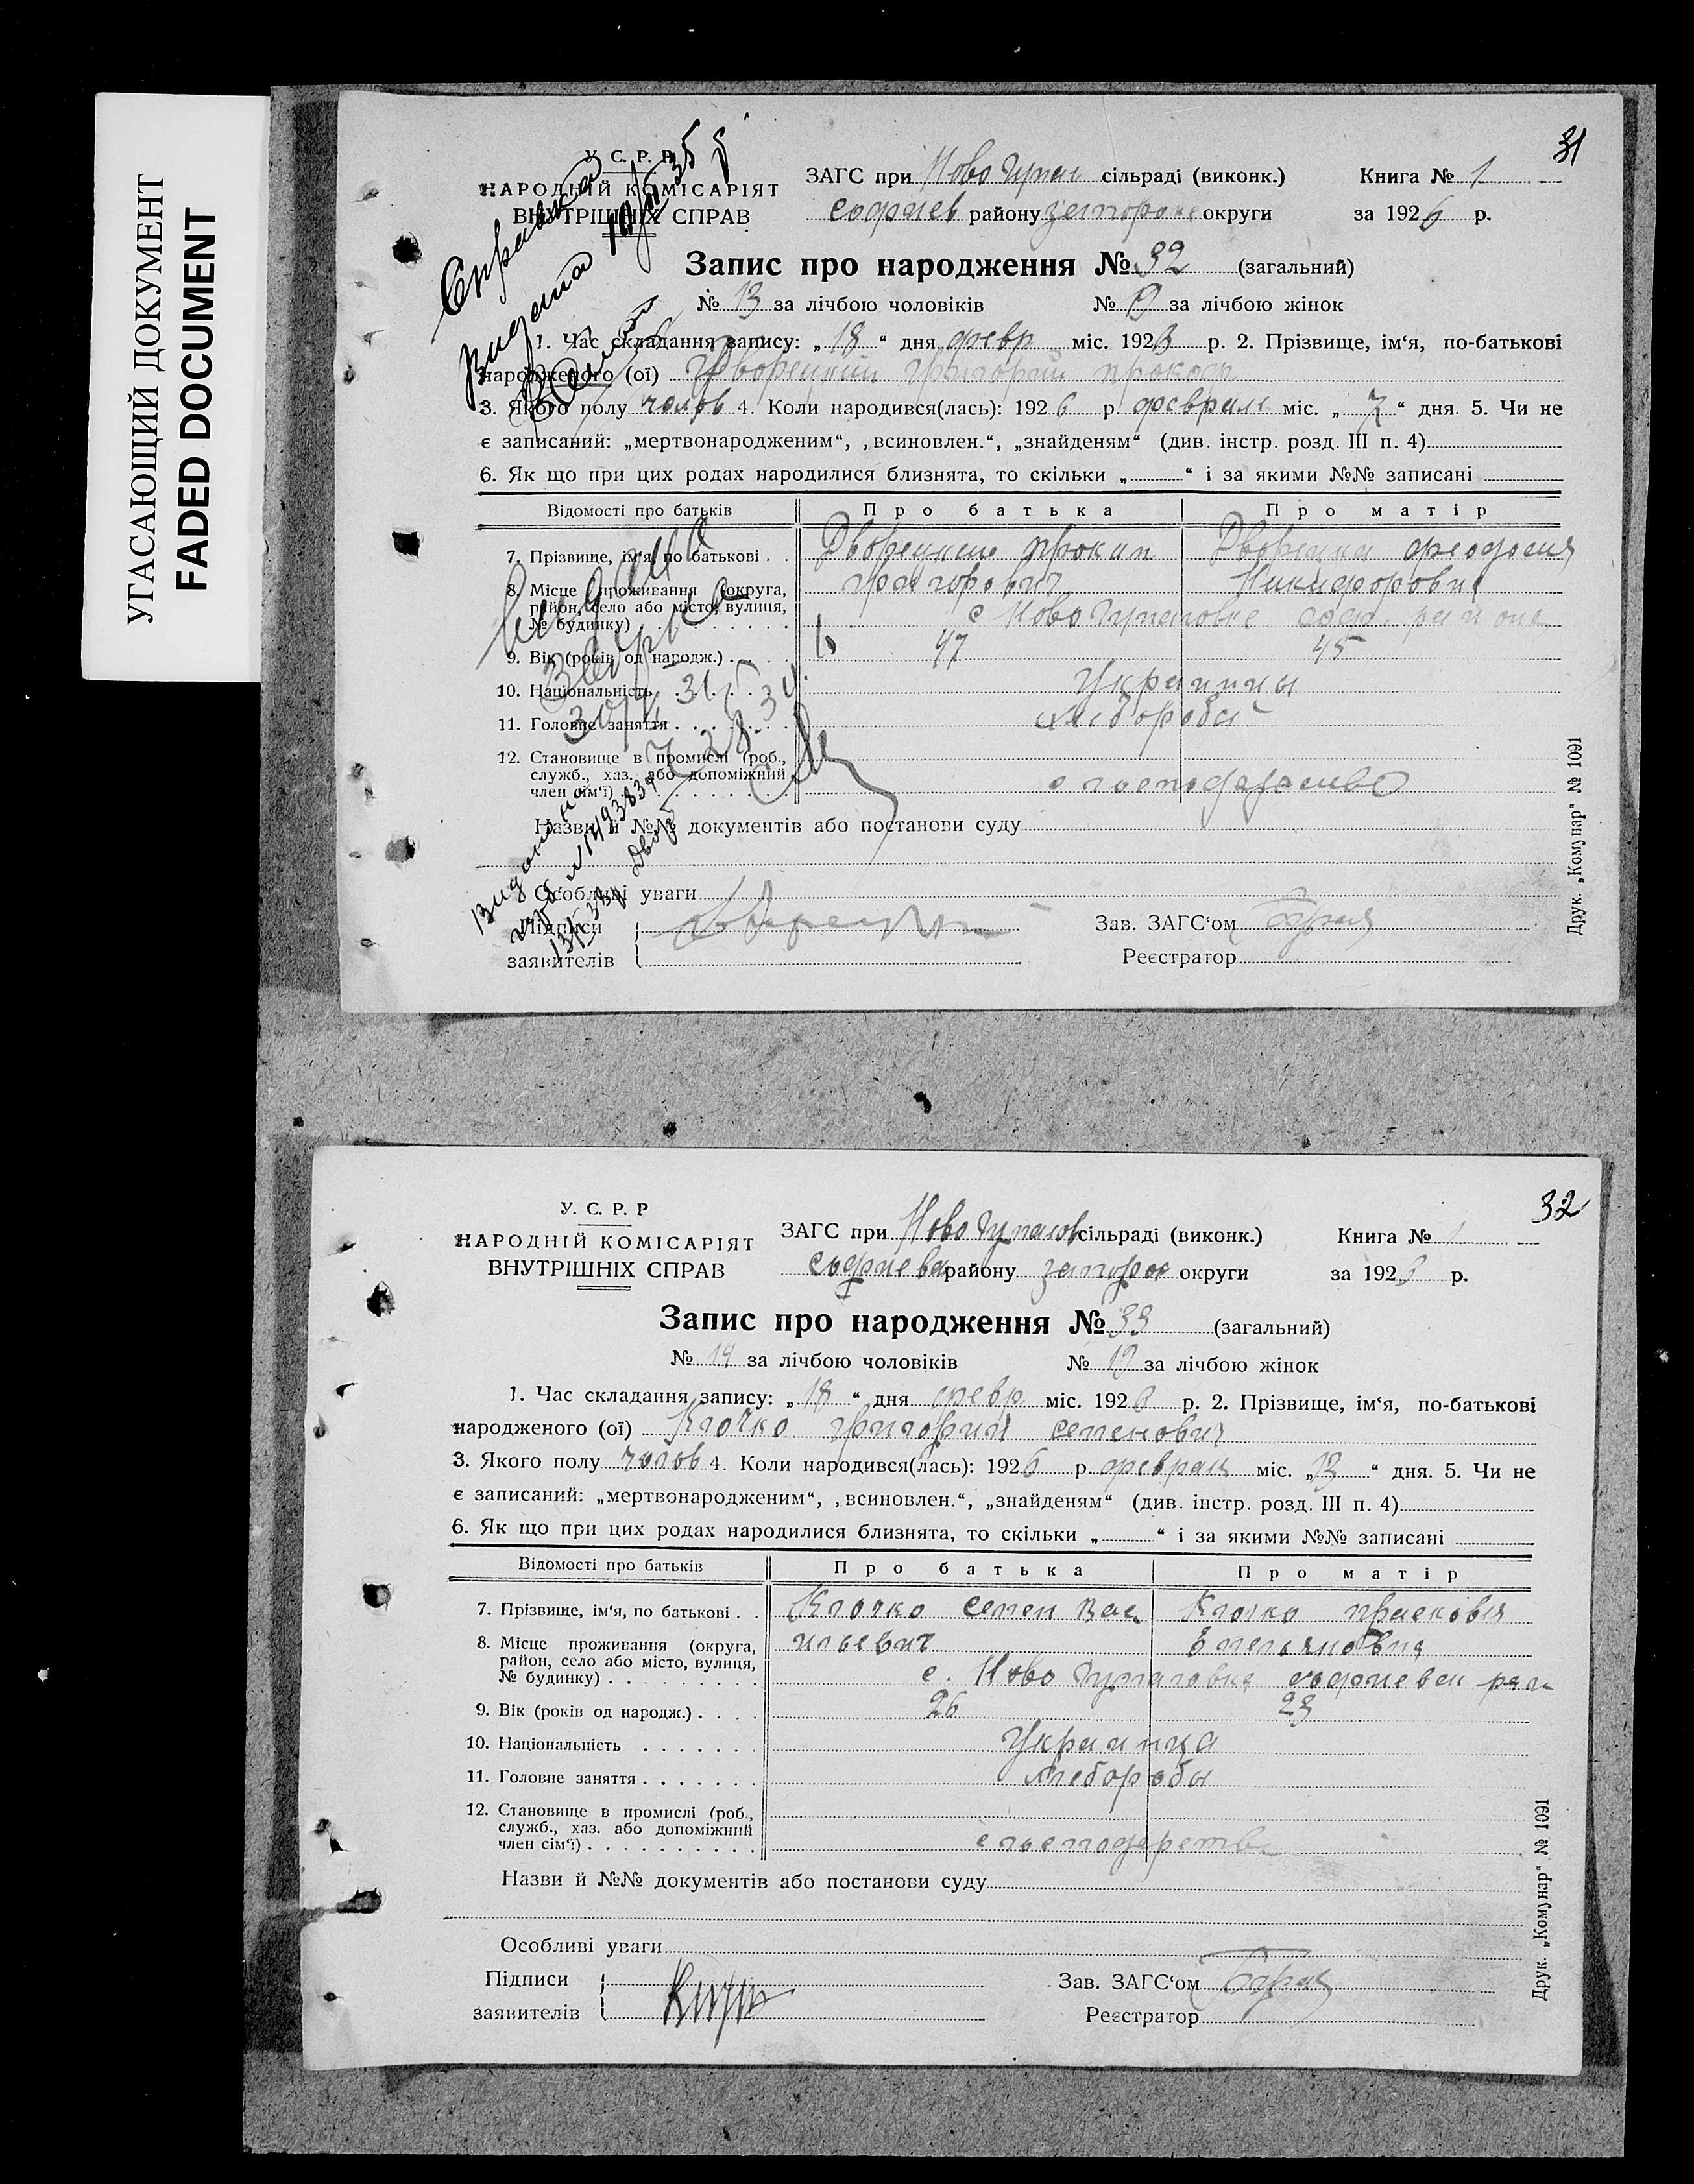 УГАСАЮЩИЙ ДОКУМЕНТ
FADED DOCUMENT
31
У. С. Р. Р.
НАРОДНІЙ КОМІСАРІЯТ
ВНУТРІШНІХ СПРАВ
ЗАГС при Ново Гупал сільраді (виконк.) Книга № 1
софиев району запорожс округи за 1926 р.
Запис про народження № 32 (загальний)
№ 13 за лічбою чоловіків № за лічбою жінок
1. Час складання запису: „18“ дня февр міс. 1926 р. 2. Прізвище, ім‘я, по-батькові
народженого (ої) Дворецкий Григорий прокоф
3. Якого полу чолов 4. Коли народився(лась): 1926 р. февраля міс. „7“ дня. 5. Чи не
є записаний: „мертвонародженим“, „всиновлен.“, „знайденям“ (див. інстр. розд. III п. 4)
6. Як що при цих родах народилися близнята, то скільки „ “ і за якими №№ записані
Відомості про батьків Про батька Про матір
7. Прізвище, ім‘я, по батькові . . Дворецкий прокип Дворецка феодосия
8. Місце проживання (округа, григорович Никифоровна
район, село або місто, вулиця,
№ будинку) с Ново Гупаловке соф. районе
9. Вік (років од народж.) . 47 45
10. Національність Украинцы
11. Головне заняття хлебороби
12. Становище в промислі (роб.,
служб., хаз. або допоміжний
член сім‘ї)
Назви й №№ документів або постанови суду
Особливі уваги
Підписи Зав. ЗАГС‘ом
заявителів Реєстратор
Справка
видана
Друк. „Комунар“ № 1091
32
У. С. Р. Р
НАРОДНІЙ КОМІСАРІЯТ
ВНУТРІШНІХ СПРАВ
ЗАГС при Ново Гупалов сільраді (виконк.) Книга № 1
софиевск району запорож округи за 1926 р.
Запис про народження № 33 (загальний)
№ 14 за лічбою чоловіків № 19 за лічбою жінок
1. Час складання запису: „18“ дня февр міс. 1926 р. 2. Прізвище, ім‘я, по-батькові
народженого (ої) Клочко григорий семенович
3. Якого полу чолов 4. Коли народився(лась): 1926 р. февраля міс. „13“ дня. 5. Чи не
є записаний: „мертвонародженим“, „всиновлен.“, „знайденям“ (див. інстр. розд. III п. 4)
6. Як що при цих родах народилися близнята, то скільки „ “ і за якими №№ записані
Відомості про батьків Про батька Про матір
7. Прізвище, ім‘я, по батькові . . Клочко Семен Вас Клочко прасковья
8. Місце проживання (округа, ильевич Емельяновна
район, село або місто, вулиця,
№ будинку) . . . . . . . . . с. Ново Гупаловка софиевск рай
9. Вік (років од народж.) . . . . 26 23
10. Національність . . . . . . . Украинца
11. Головне заняття . . . . . . . хлебороби
12. Становище в промислі (роб.,
служб., хаз. або допоміжний
член сім‘ї) . . . . . . . . . .
Назви й №№ документів або постанови суду
Особливі уваги
Підписи Зав. ЗАГС‘ом
заявителів Реєстратор
Друк. „Комунар“ № 1091